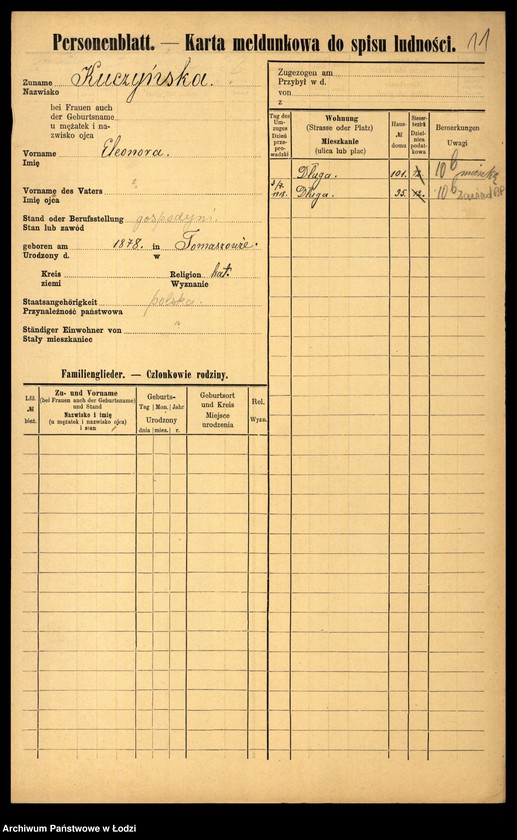 Personenblatt. — Karta meldunkowa do spisu ludności. 11
Zuname Kuczyńska.
Nazwisko
bei Frauen auch
der Geburtsname
u mężatek i na-
zwisko ojca
Vorname Eleonora.
Imię
Vorname des Vaters
Imię ojca
Stand oder Berufsstellung gospodyni.
Stan lub zawód
geboren am 1878. in Tomaszowie.
Urodzony d. w
Kreis Religion kat.
ziemi Wyznanie
Staatsangehörigkeit polska.
Przynależność państwowa
Ständiger Einwohner von
Stały mieszkaniec
Familienglieder. — Członkowie rodziny.
Lfd. № bież.
Zu- und Vorname
(bei Frauen auch der Geburtsname)
und Stand
Nazwisko i imię
(u mężatek i nazwisko ojca)
i stan
Geburts-
Tag Mon. Jahr
Urodzony
dnia mies. r.
Geburtsort
und Kreis
Miejsce
urodzenia
Rel.
Wyzn.
Zugezogen am
Przybył w d.
von
z
Tag des
Um-
zuges
Dzień
prze-
prowadzki
Wohnung
(Strasse oder Platz)
Mieszkanie
(ulica lub plac)
Haus-
№
domu
Steuer-
bezirk
Dziel-
nica
podat-
kowa
Bemerkungen
Uwagi
Długa. 101. 12. 10b
Długa. 35. 12. 10b
Archiwum Państwowe w Łodzi